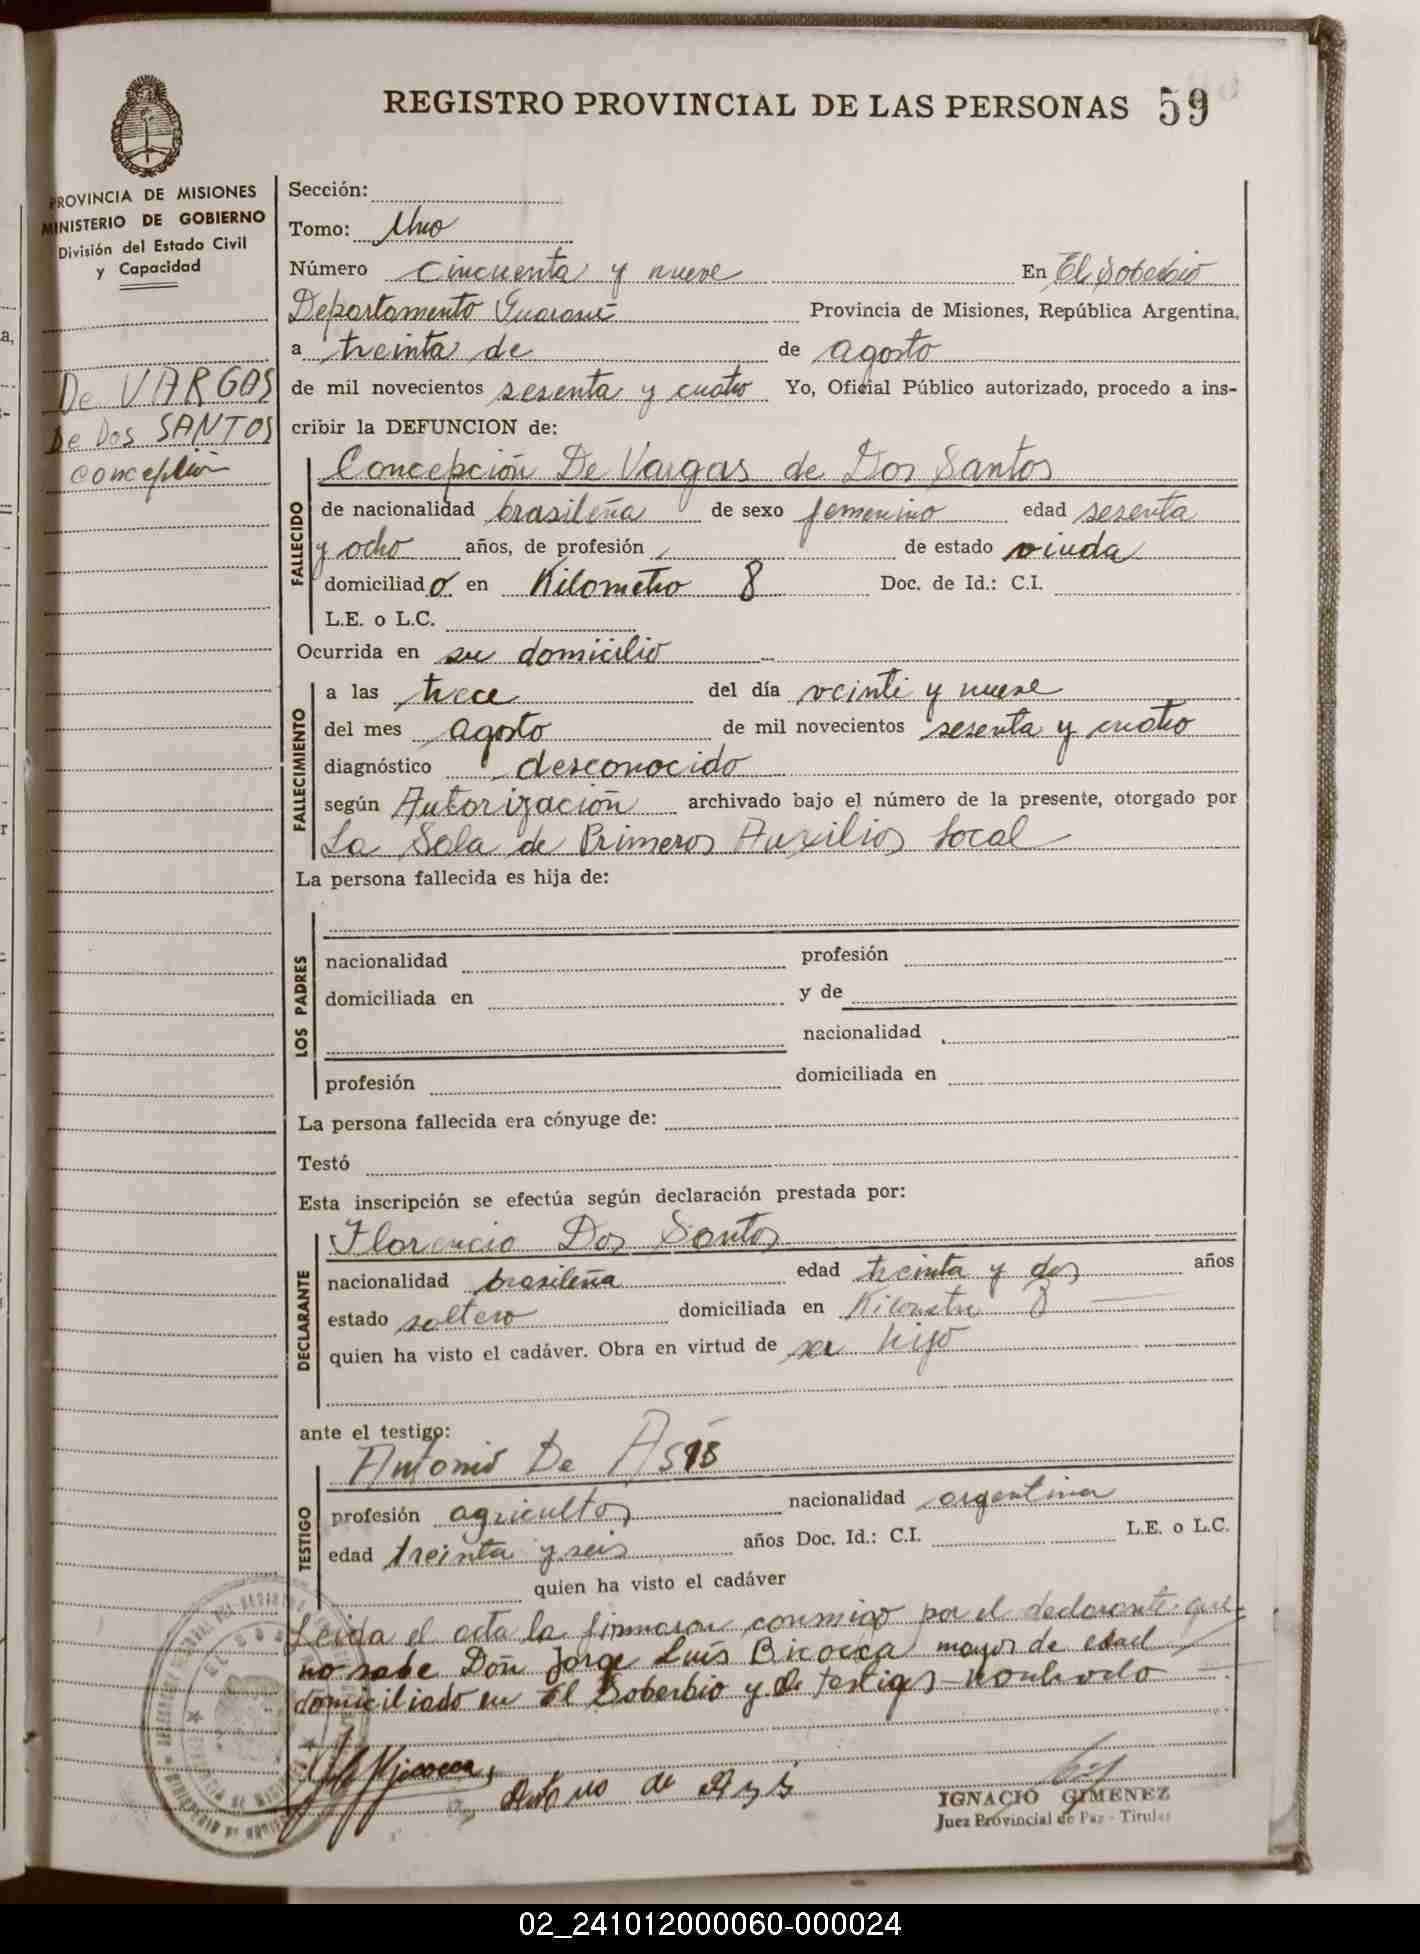 REGISTRO PROVINCIAL DE LAS PERSONAS 59
PROVINCIA DE MISIONES
MINISTERIO DE GOBIERNO
División del Estado Civil
y Capacidad
De VARGAS
De Dos SANTOS
Concepción
Sección:
Tomo: Uno
Número cincuenta y nueve En El Soberbio
Departamento Guaraní Provincia de Misiones, República Argentina,
a treinta de de agosto
de mil novecientos sesenta y cuatro Yo, Oficial Público autorizado, procedo a ins-
cribir la DEFUNCION de:
FALLECIDO
Concepción De Vargas de Dos Santos
de nacionalidad brasileña de sexo femenino edad sesenta
y ocho años, de profesión de estado viuda
domiciliado en Kilometro 8 Doc. de Id.: C.I.
L.E. o L.C.
Ocurrida en su domicilio
FALLECIMIENTO
a las trece del día veinti y nueve
del mes agosto de mil novecientos sesenta y cuatro
diagnóstico desconocido
según Autorización archivado bajo el número de la presente, otorgado por
La Sala de Primeros Auxilios Local
La persona fallecida es hija de:
LOS PADRES
nacionalidad profesión
domiciliada en y de
nacionalidad
profesión domiciliada en
La persona fallecida era cónyuge de:
Testó
Esta inscripción se efectúa según declaración prestada por:
DECLARANTE
Florencio Dos Santos
nacionalidad brasileña edad treinta y dos años
estado soltero domiciliada en Kilometro 8
quien ha visto el cadáver. Obra en virtud de ser hijo
ante el testigo:
TESTIGO
Antonio De Asís
profesión agricultor nacionalidad argentina
edad treinta y seis años Doc. Id.: C.I. L.E. o L.C.
quien ha visto el cadáver
Leida el acta la firmaron conmigo por el declarante que
no sabe Don Jorge Luís Bicocca mayor de edad
domiciliado en El Soberbio y de testigos nombrado
Antonio de Asis
IGNACIO GIMENEZ
Juez Provincial de Paz - Titular
02_241012000060-000024